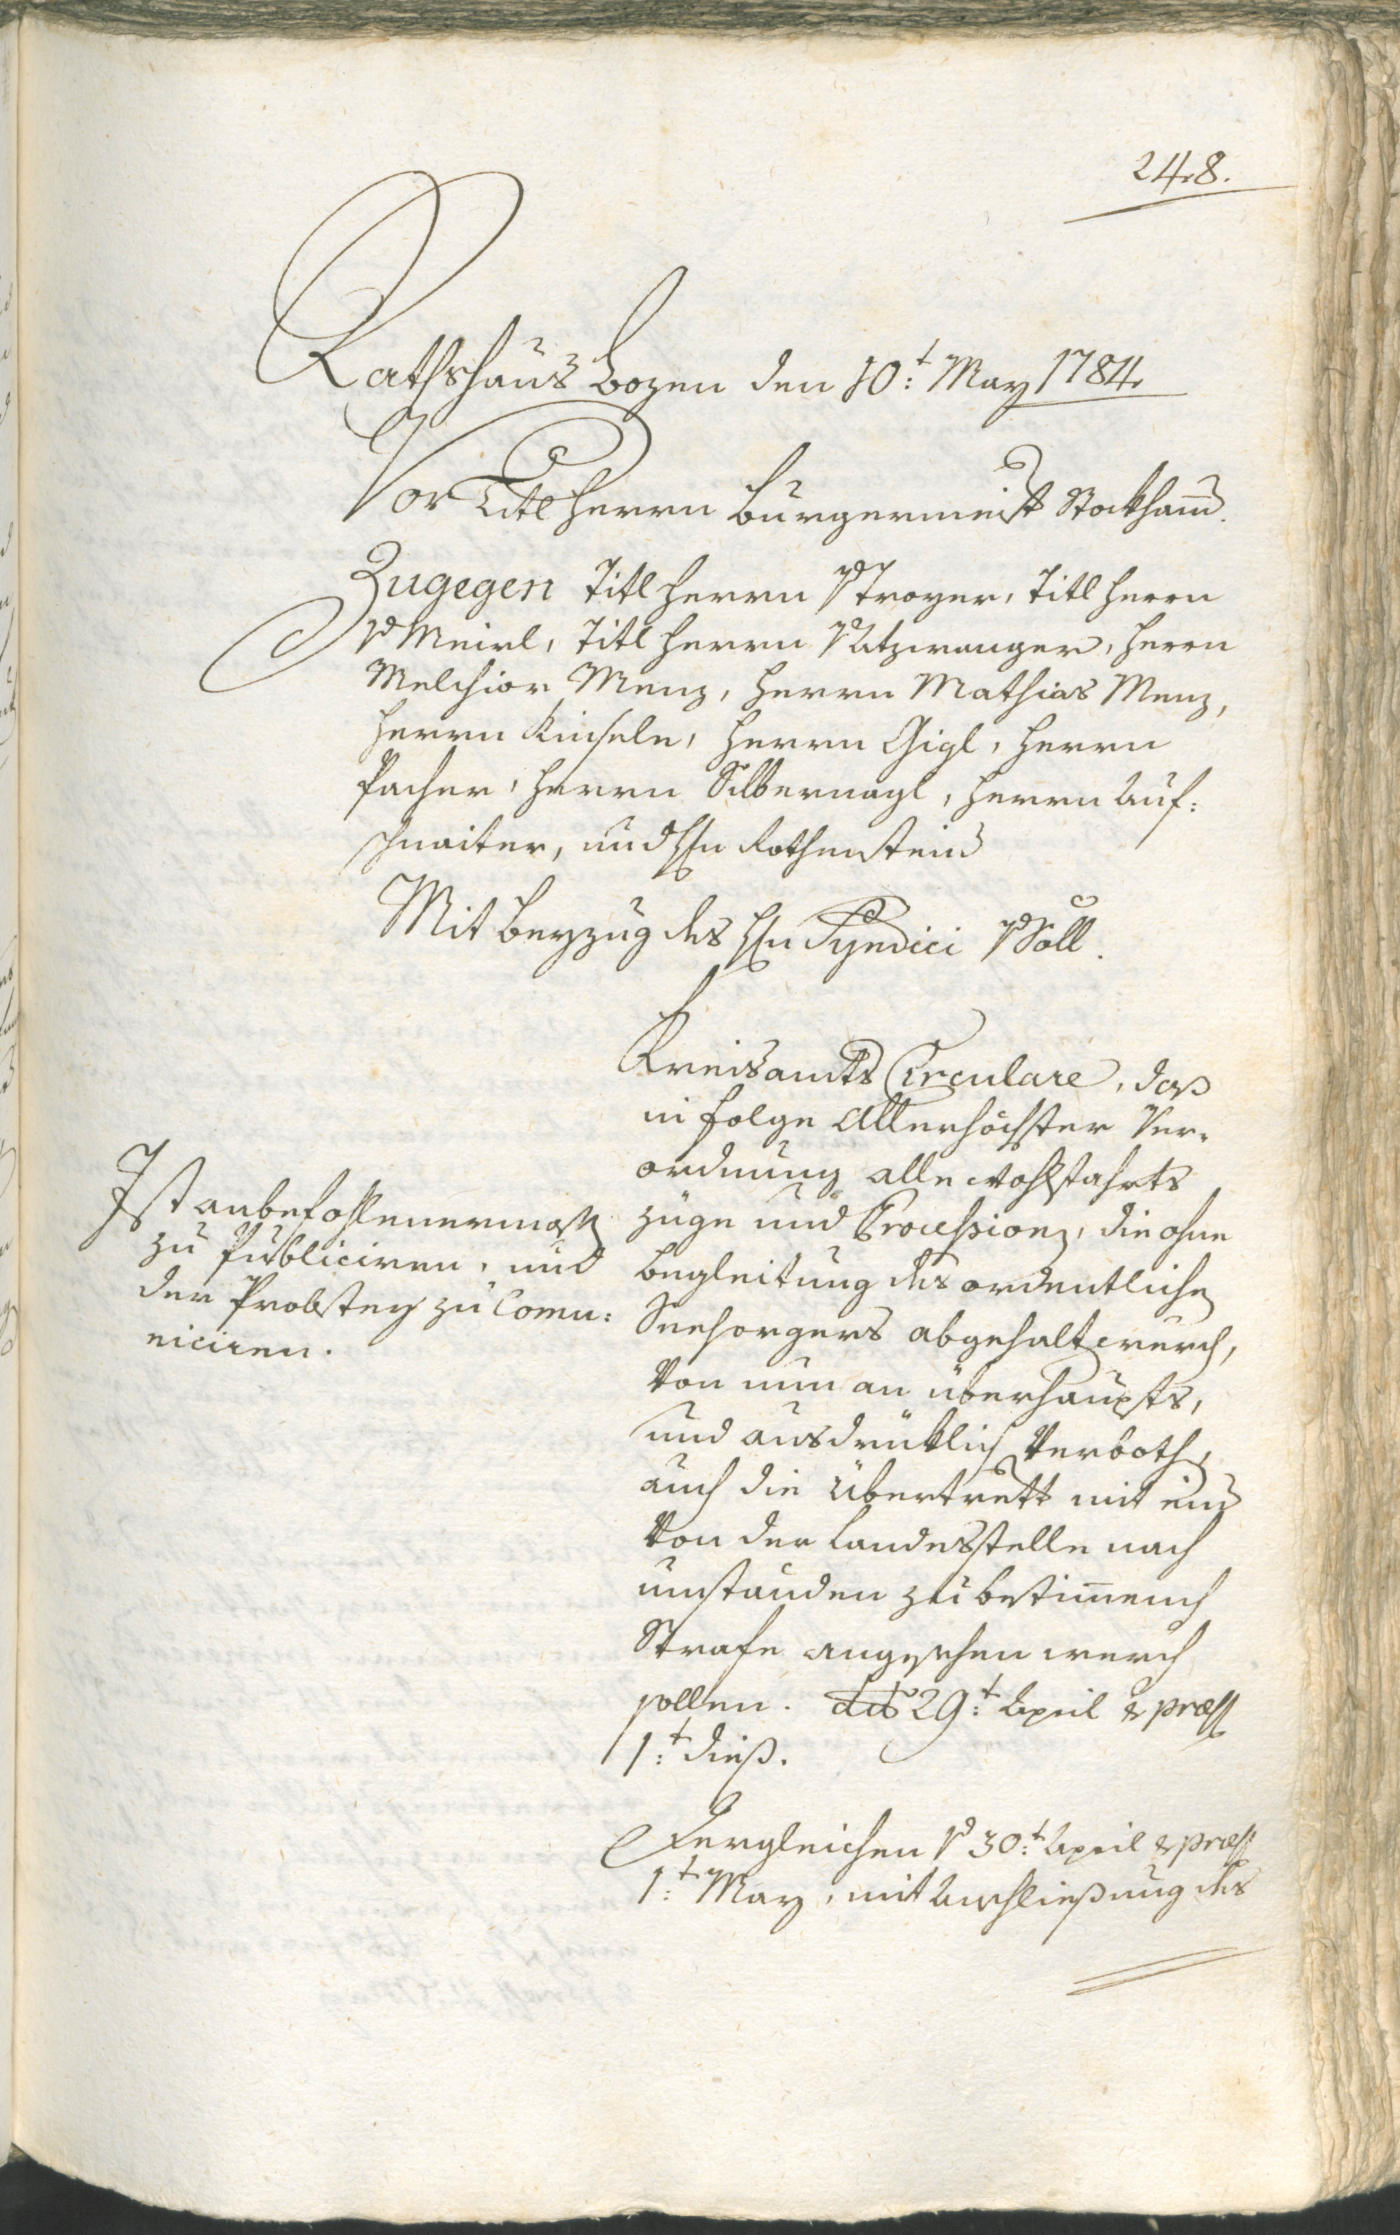 248.
Rathshaus Bozen den 10:t May 1784
Vor Titl Herrn Burgermeistr Stockham̅er.
Zugegen Titl Herrn v Troyer, Titl Herrn
v Meirl, Titl Herrn v Atzwanger, Herrn
Melchior Menz, Herrn Mathias Menz,
Herrn Kinsele, Herrn Gigl, Herrn
Pacher, Herrn Silbernagl, Herrn Auf:
schnaiter, und Hn Rothenstein
Mit beyzug des Hn Syndici v Söll.
Kreisamts Circulare, daß
in folge Allerhöchster Ver-
ordnung alle wohlfahrts
züge und Procession, die ohne
begleitung des ordentlichen
Seelsorgers abgehalten wurden,
von nun an überhaupts,
und ausdrüklich verbothen
auch die Übertrett mit einer
von der Landesstelle nach
umständen zu bestim̅enden
Strafe angesehen werden
sollen. dto 29:t April & præs
1:t dieß.
Ist anbefohlenermassen
zu Publiciren, und
der Probstey zu Comu:
niciren.
Dergleichen v 30:t April & præs
1:t May, mit Anschließung des